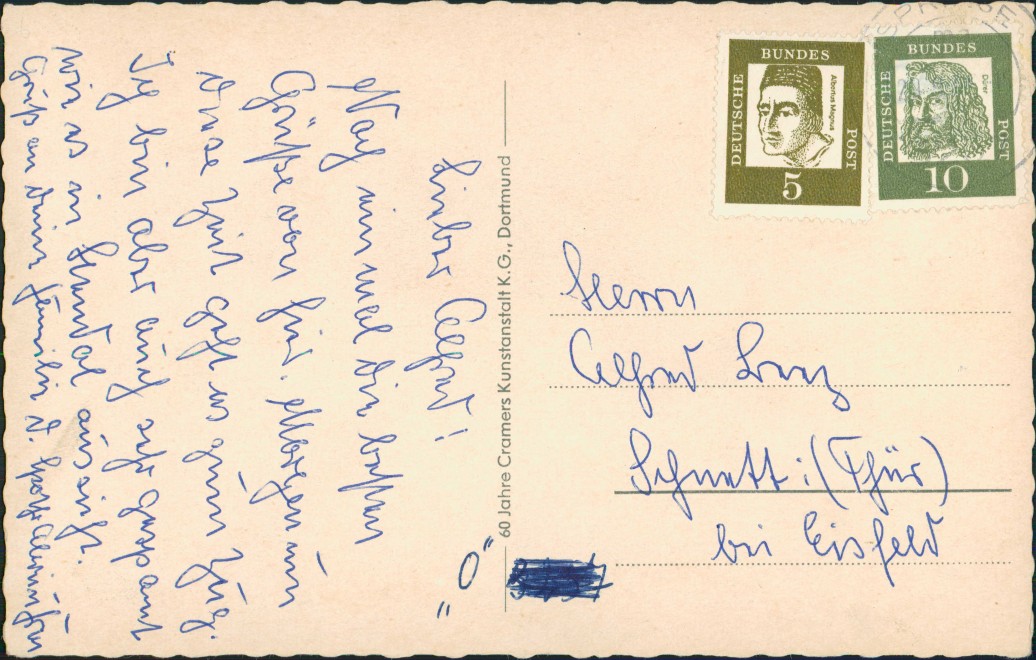 Lieber Alfred!
Noch einmal die besten
Grüße von hier. Morgen um
diese Zeit geht es zum Zug.
Ich bin aber auch sehr gespannt
wie es in aussieht.
Grüße an deine Familie d.
"O"
60 Jahre Cramers Kunstanstalt K.G., Dortmund
DEUTSCHE BUNDES POST
Albertus Magnus
5
DEUTSCHE BUNDES POST
Dürer
10
Herrn
Alfred
Schnett i. (Thür)
bei Eisfeld